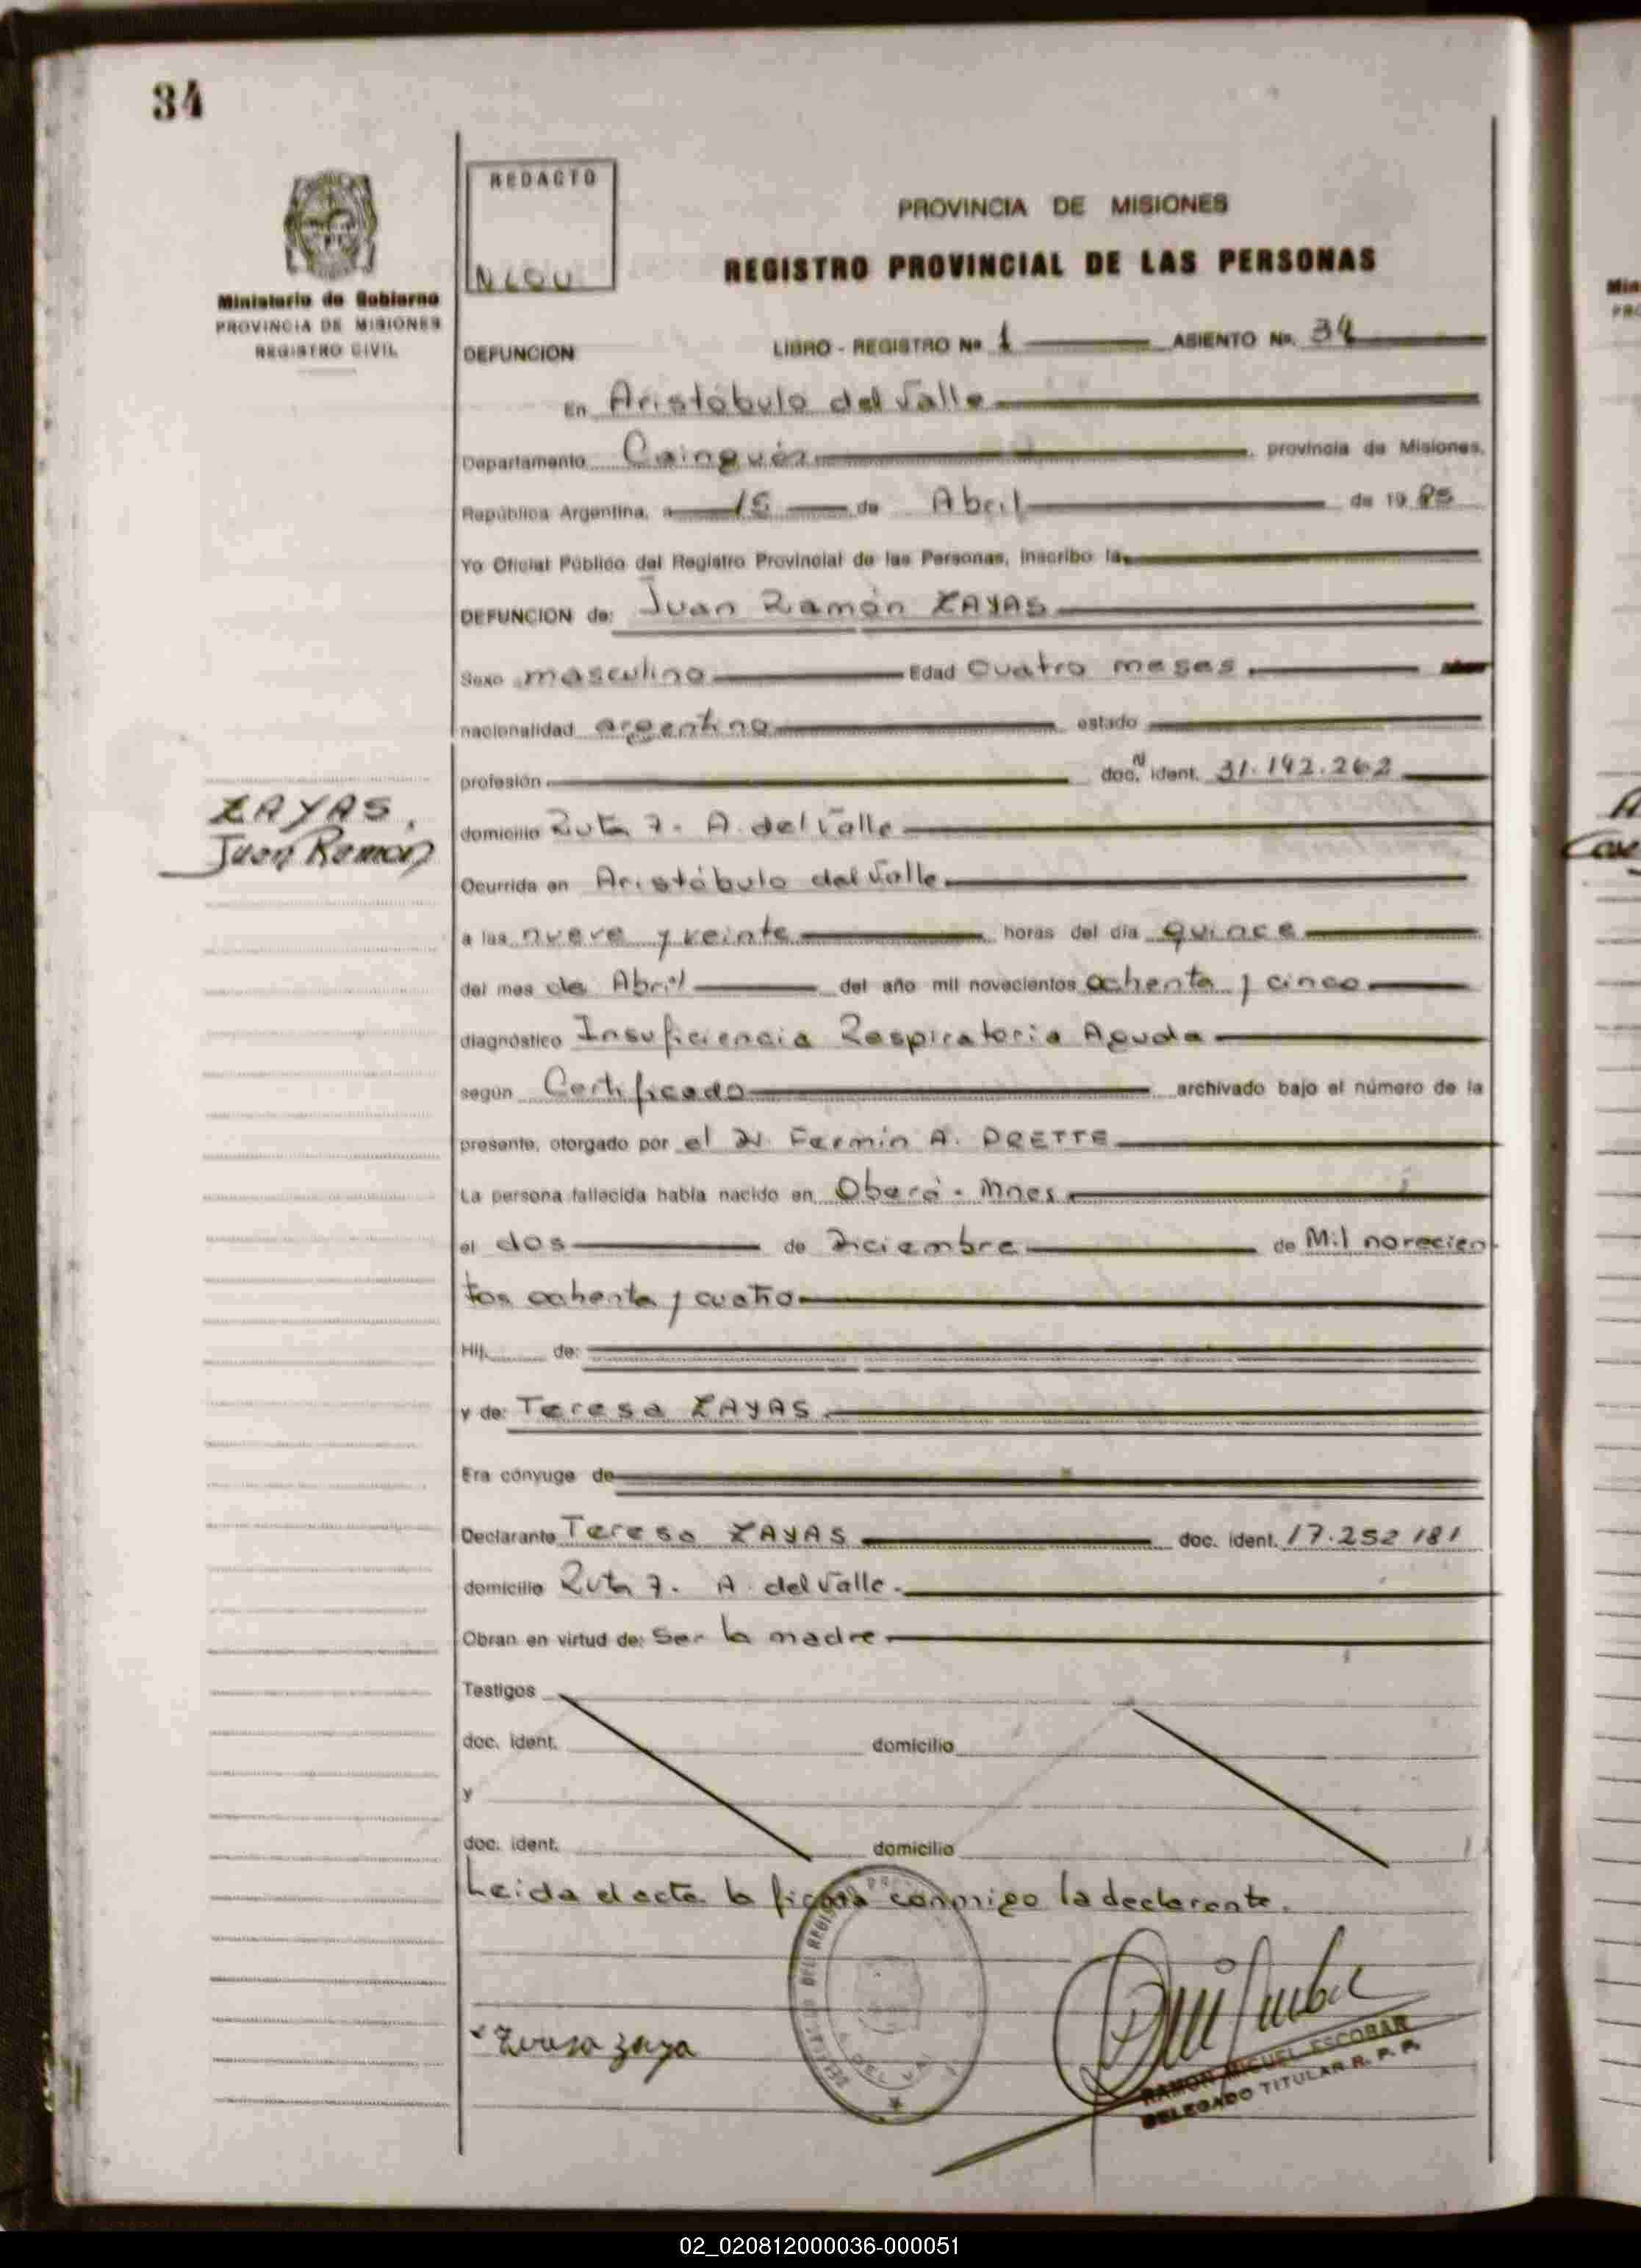 34
REDACTO
PROVINCIA DE MISIONES
REGISTRO PROVINCIAL DE LAS PERSONAS
Ministerio de Gobierno
PROVINCIA DE MISIONES
REGISTRO CIVIL
DEFUNCION LIBRO - REGISTRO Nº 1 ASIENTO No. 34
En Aristóbulo del Valle
Departamento Cainguás provincia de Misiones,
República Argentina, a 15 de Abril de 1985
Yo Oficial Público del Registro Provincial de las Personas, inscribo la
DEFUNCION de: Juan Ramón ZAYAS
Sexo masculino Edad Cuatro meses
nacionalidad argentina estado
profesión doc. ident. 31.192.262
ZAYAS,
Juan Ramon
domicilio Ruta 7. A. del Valle
Ocurrida en Aristóbulo del Valle
a las nueve y veinte horas del día quince
del mes de Abril del año mil novecientos ochenta y cinco
diagnóstico Insuficiencia Respiratoria Aguda
según Certificado archivado bajo el número de la
presente, otorgado por el Dr. Fermín A. DRETTE
La persona fallecida había nacido en Oberá - Mnes.
el dos de Diciembre de Mil novecien
tos ochenta y cuatro
Hij de:
y de: Teresa ZAYAS
Era cónyuge de
Declarante Teresa ZAYAS doc. ident. 17.252 181
domicilio Ruta 7. A. del Valle.
Obran en virtud de: Ser la madre
Testigos
doc. ident. domicilio
y
doc. ident. domicilio
Leida el acta la firma conmigo la declarante.
Teresa zaya
RAMON MIGUEL ESCOBAR
DELEGADO TITULAR R. P. P.
02_020812000036-000051